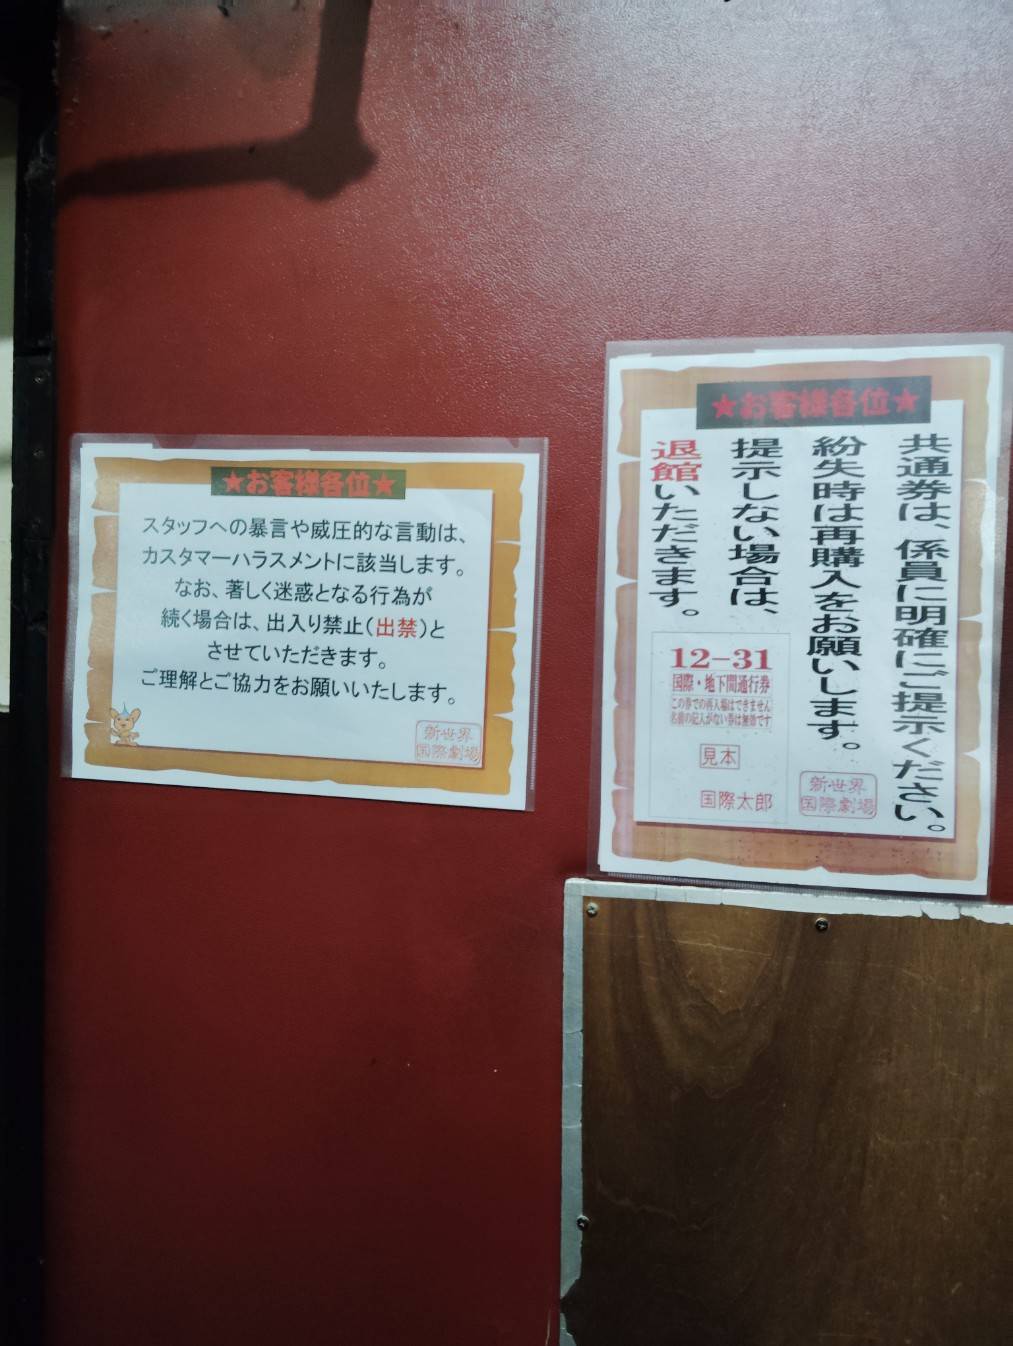 ★お客様各位★
スタッフへの暴言や威圧的な言動は、
カスタマーハラスメントに該当します。
なお、著しく迷惑となる行為が
続く場合は、出入り禁止(出禁)と
させていただきます。
ご理解とご協力をお願いいたします。
新世界
国際劇場
★お客様各位★
共通券は、係員に明確にご提示ください。
紛失時は再購入をお願いします。
提示しない場合は、
退館いただきます。
12-31
国際・地下間通行券
この券での再入場はできません
名前の記入がない券は無効です
見本
国際太郎
新世界
国際劇場